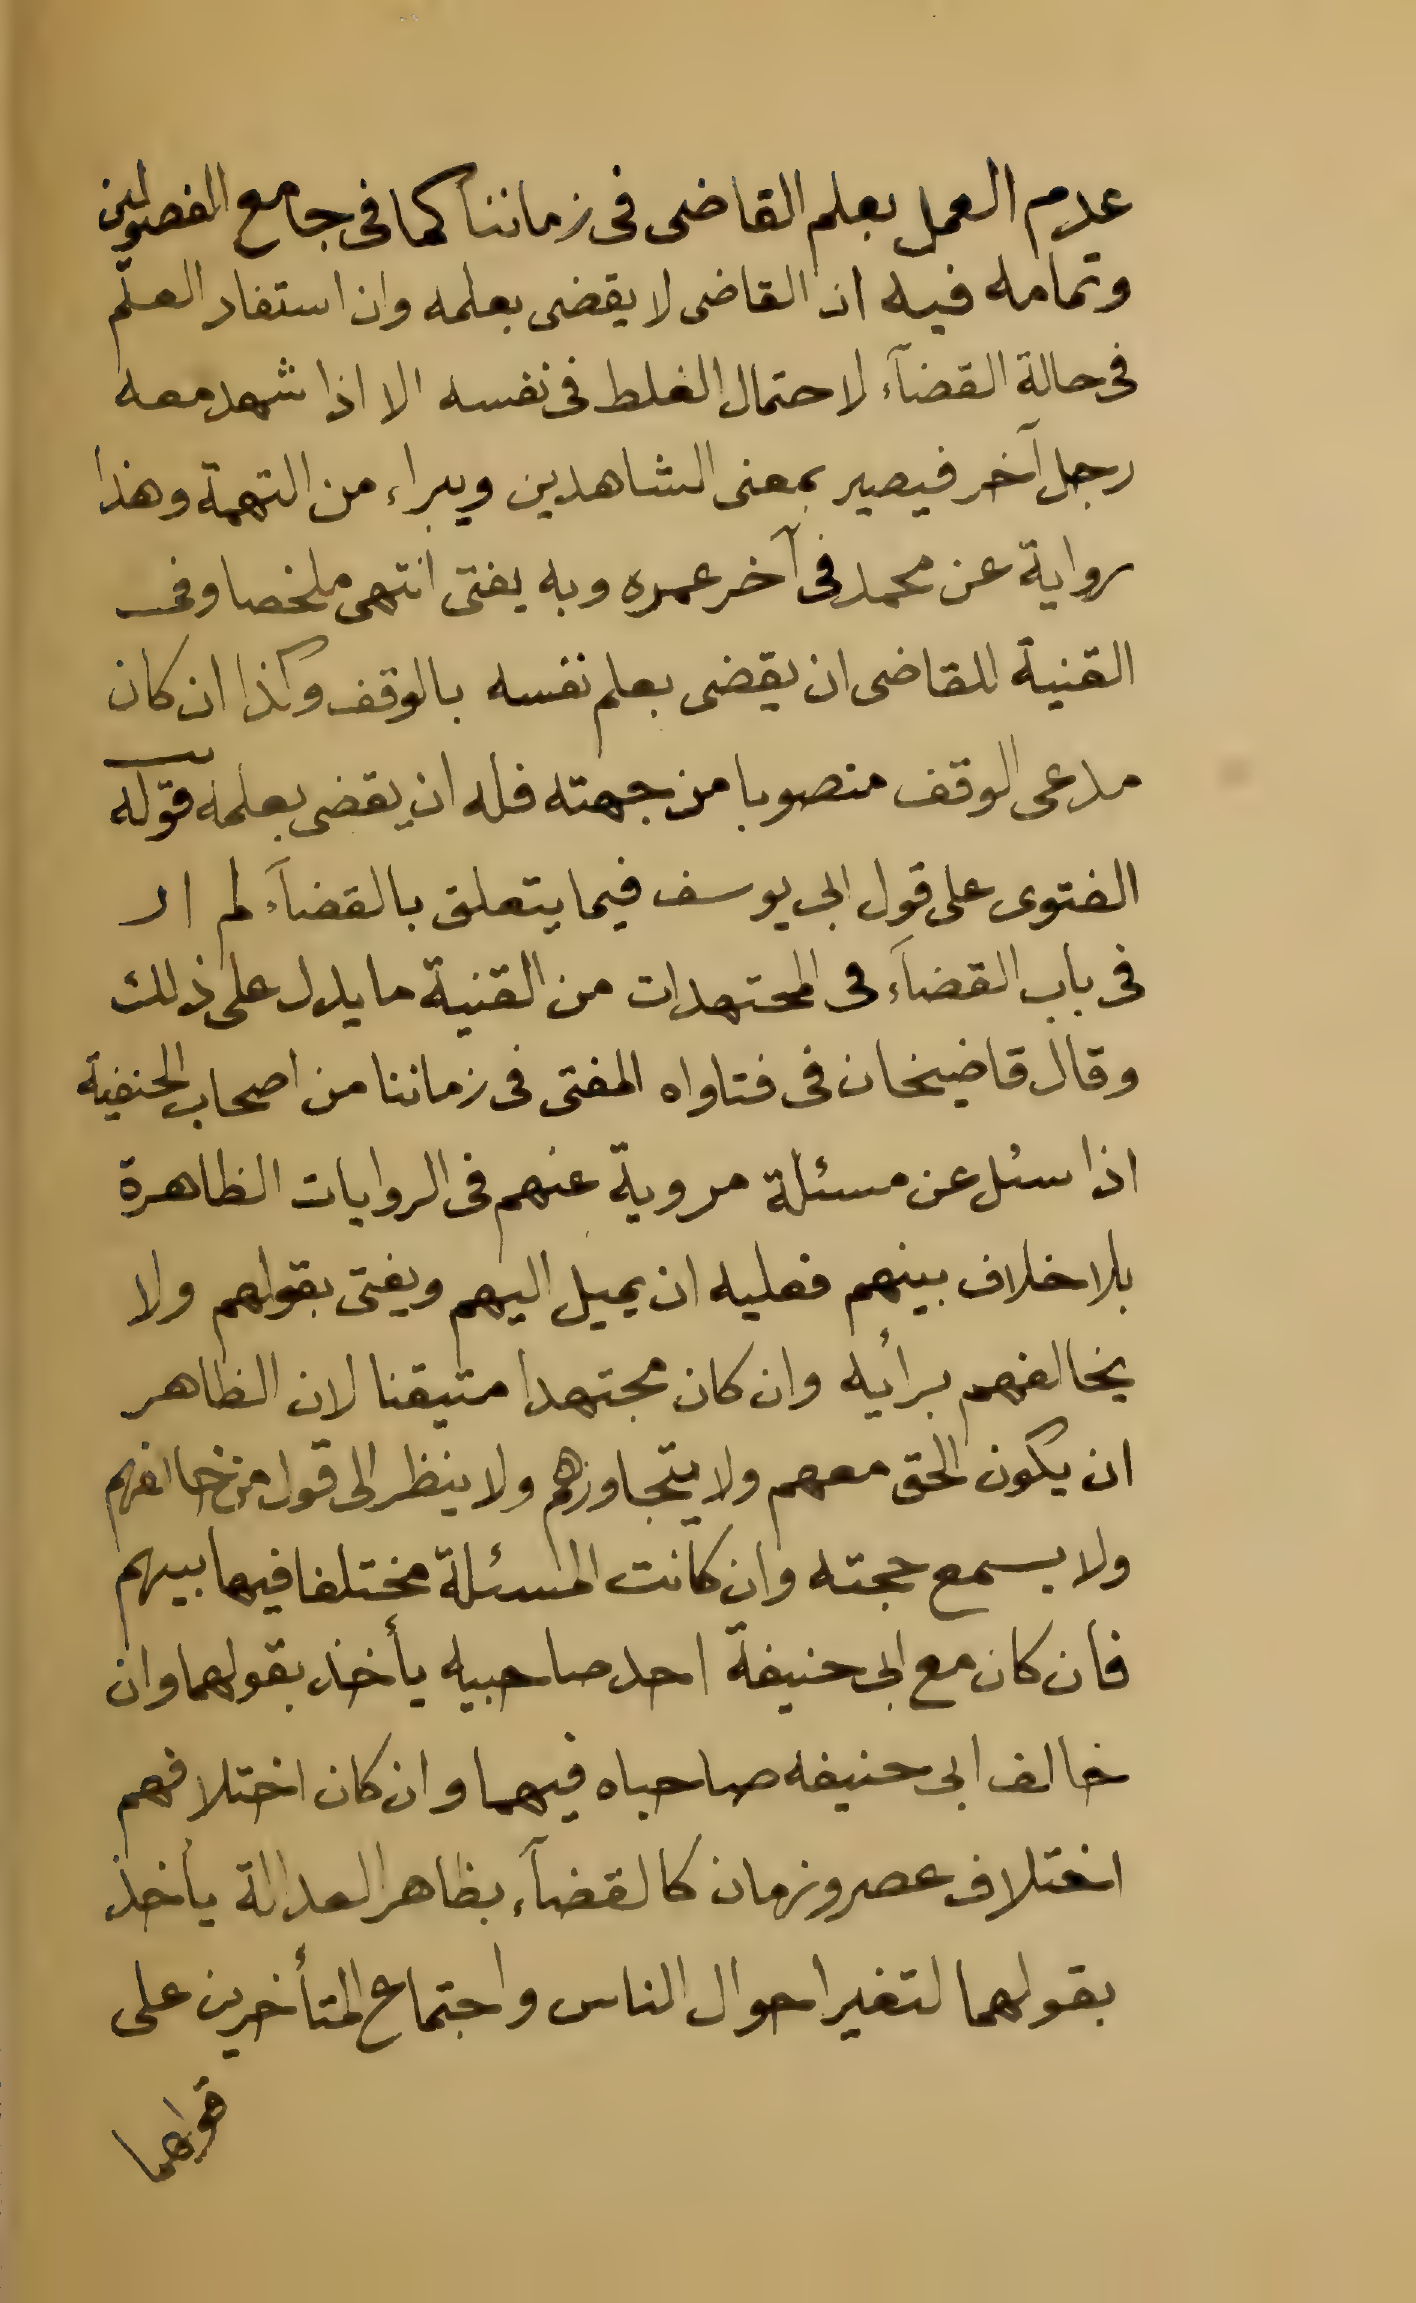 عدم العمل بعلم القاضى فى زماننا كما فى جامع الفصولين
وتمامه فيه ان القاضى لا يقضى بعلمه وان استفاد العلم
فى حالة القضآء لاحتمال الغلط فى نفسه الا اذا شهد معه
رجل آخر فيصير بمعنى الشاهدين ويبراء من التهمة وهذا
رواية عن محمد فى آخر عمره وبه يفتى انتهى ملخصا وفى
القنية للقاضى ان يقضى بعلم نفسه بالوقف وكذا ان كان
مدعى الوقف منصوبا من جهته فله ان يقضى بعلمه قوله
الفتوى على قول ابى يوسف فيما يتعلق بالقضآء لم ار
فى باب القضآء فى المجتهدات من القنية ما يدل على ذلك
وقال قاضيخان فى فتاواه المفتى فى زماننا من اصحاب الحنفية
اذا سئل عن مسئلة مروية عنهم فى الروايات الظاهرة
بلا خلاف بينهم فعليه ان يميل اليهم ويفتى بقولهم ولا
يخالفهم برأيه وان كان مجتهدا متيقنا لان الظاهر
ان يكون الحق معهم ولا يتجاوزهم ولا ينظر الى قول من خالفهم
ولا يسمع حجته وان كانت المسئلة مختلفا فيها بينهم
فأن كان مع ابى حنيفة احد صاحبيه يأخذ بقولهما وان
خالف ابى حنيفه صاحباه فيهما وان كان اختلافهم
اختلاف عصر وزمان كالقضآء بظاهر العدالة يأخذ
بقولهما لتغير احوال الناس واجتماع المتأخرين على
قولهما